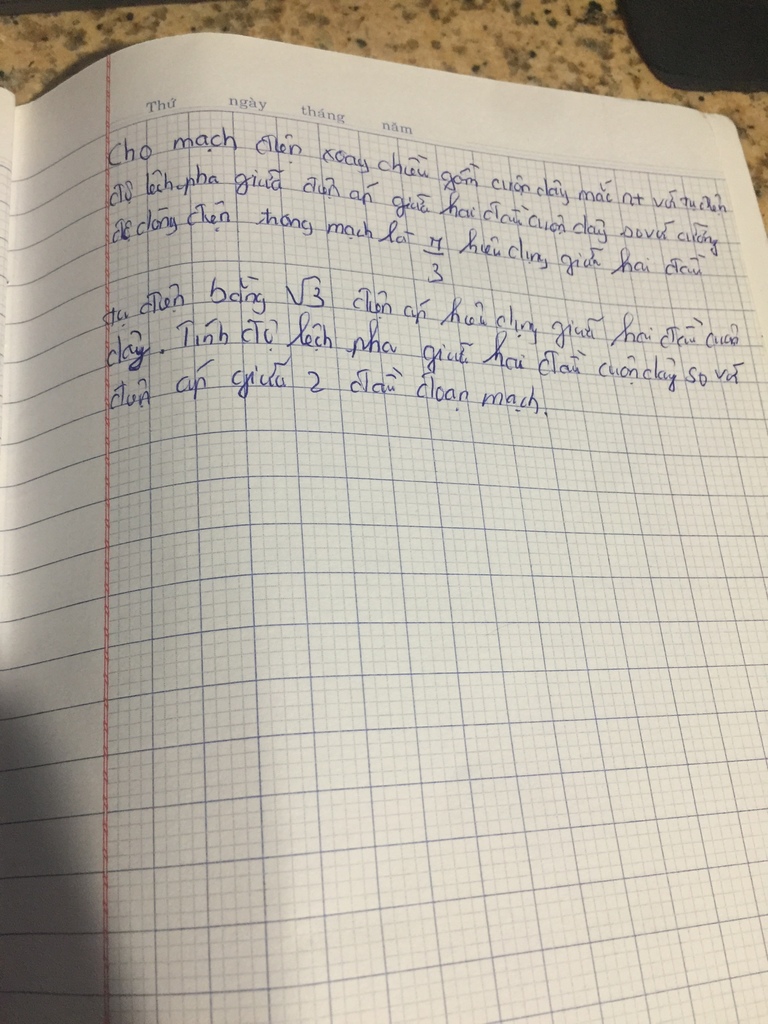 Thứ ngày tháng năm
Cho mạch điện xoay chiều gồm cuộn dây mắc nt với tụ điện
độ lệch pha giữa điện áp giữa hai đầu cuộn dây so với cường
độ dòng điện trong mạch là π/3 hiệu dụng giữa hai đầu
tụ điện bằng √3 điện áp hiệu dụng giữa hai đầu cuộn
dây. Tính độ lệch pha giữa hai đầu cuộn dây so với
điện áp giữa 2 đầu đoạn mạch.